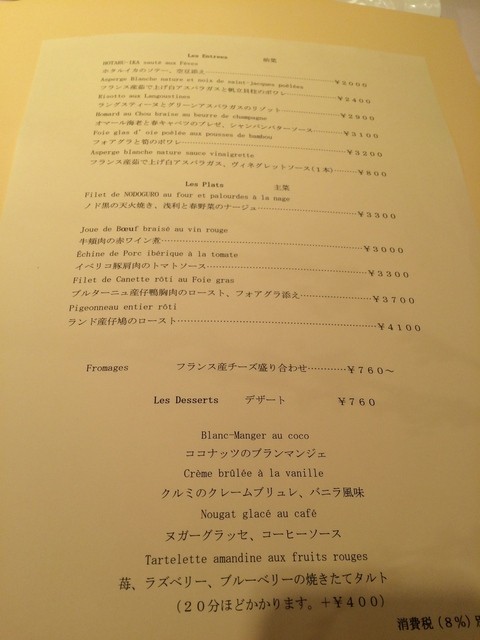 Les Entrees 前菜
HOTARU-IKA sauté aux Fèves
ホタルイカのソテー、空豆添え ¥2000
Asperge Blanche nature et noix de saint-jacques poêlées
フランス産茹で上げ白アスパラガスと帆立貝柱のポワレ ¥2400
Risotto aux Langoustines
ラングスティーヌとグリーンアスパラガスのリゾット ¥2900
Homard au Chou braise au beurre de champagne
オマール海老と春キャベツのブレゼ、シャンパンバターソース ¥3100
Foie glas d'oie poêlée aux pousses de bambou
フォアグラと筍のポワレ ¥3300
Asperge blanche nature sauce vinaigrette
フランス産茹で上げ白アスパラガス、ヴィネグレットソース(1本) ¥800
Les Plats 主菜
Filet de NODOGURO au four et palourdes à la nage
ノド黒の天火焼き、浅利と春野菜のナージュ ¥3300
Joue de Bœuf braisé au vin rouge
牛頬肉の赤ワイン煮 ¥3000
Échine de Porc ibérique à la tomate
イベリコ豚肩肉のトマトソース ¥3300
Filet de Canette rôti au Foie gras
ブルターニュ産仔鴨胸肉のロースト、フォアグラ添え ¥3700
Pigeonneau entier rôti
ランド産仔鳩のロースト ¥4100
Fromages フランス産チーズ盛り合わせ…………¥760~
Les Desserts デザート ¥760
Blanc-Manger au coco
ココナッツのブランマンジェ
Crème brûlée à la vanille
クルミのクレームブリュレ、バニラ風味
Nougat glacé au café
ヌガーグラッセ、コーヒーソース
Tartelette amandine aux fruits rouges
苺、ラズベリー、ブルーベリーの焼きたてタルト
(20分ほどかかります。+¥400)
消費税(8%)別